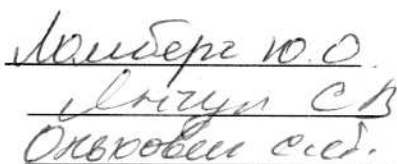 Ломберг Ю.О.
Янчул С В
Оньковец С.М.